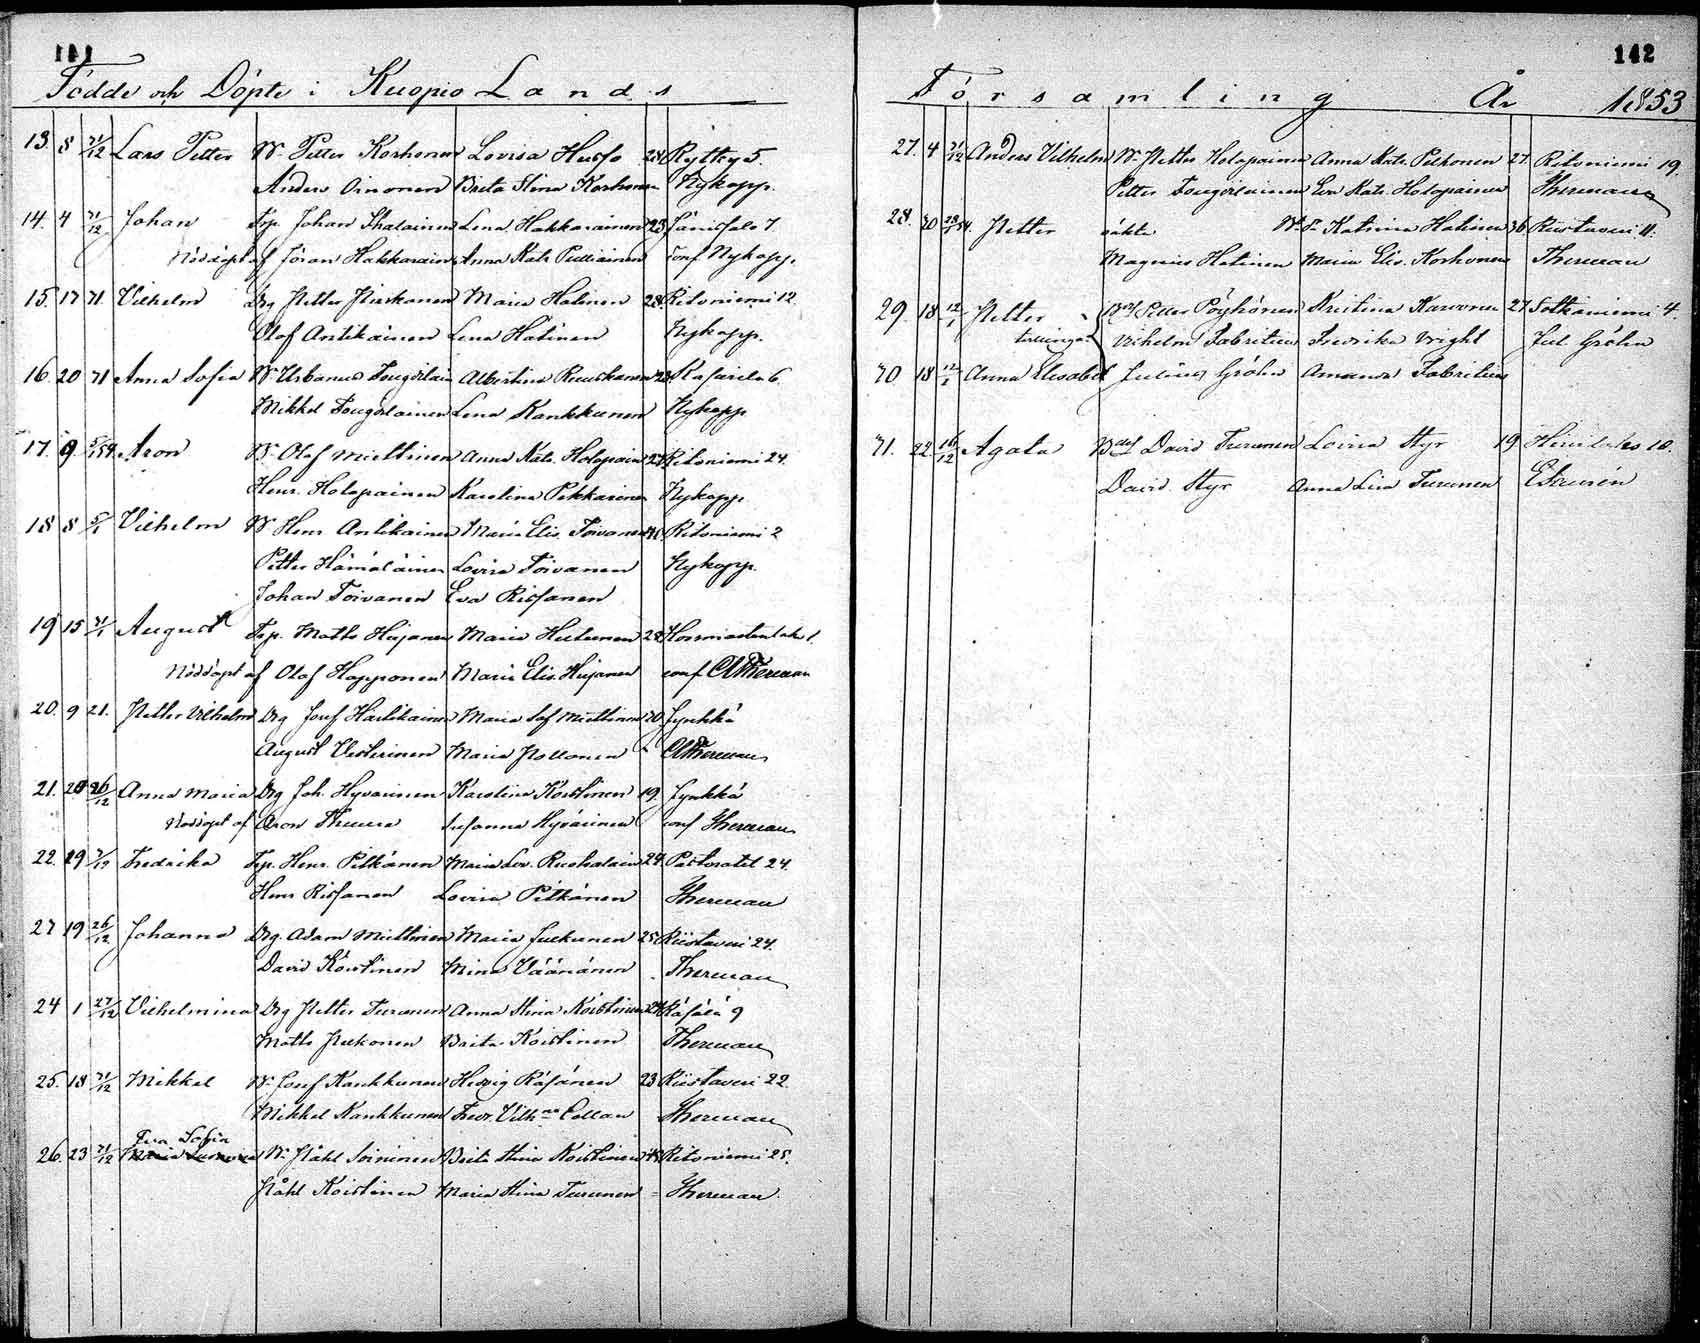 141
Födde och Döpte i Kuopio Lands
13. 8 31/12 Lars Petter Petter Korhonen Lovisa Husso 28 Rytky 5.
Anders Oinonen Brita Stina Korhonen Nykopp.
14. 4 31/12 Johan Trp. Johan Lena Hakkarainen 23 Jänissalo 7
Nöddöpt af Jöran Hakkarainen Anna Katr. Pulliainen Conf Nykopp.
15. 17 31. Vilhelm Drg Petter Puskanen Maria Hatinen 28. Ritoniemi 12
Olof Antikainen Lena Hatinen Nykopp.
16. 20 31 Anna Sofia Urbanus Tougdilain Albertina Ruuskanen 6.
Mikkel Tougdilainen Lena Kankkunen Nykopp
17. 9. 5/1 54. Aron Olof Miettinen Anna Katr. Holopain Ritoniemi 24.
Henr. Holopainen Karolina Pekkarinen Nykopp
18 8 5/1 Vilhelm Henr. Antikainen Maria Elis. Toivanen Ritoniemi 2
Petter Hämäläinen Lovisa Toivanen Nykopp.
Johan Toivanen Eva Rissanen
19 15 31/1 August Trp. Matts Hujanen Maria Hutunen 28 1.
Nöddöpt af Olof Happonen Maria Elis. Hujanen conf Therman
20. 9 21. Petter Vilhelm Drg Josef Hartikainen Maria Sof Miettinen 30 Jynkkä
August Vesterinen Maria Pollonen Therman
21. 20 26/12 Anna Maria Drg Joh. Hyvärinen Karolina Koistinen 19. Jynkkä
Nöddöpt af Aron Susanna Hyvärinen conf Therman
22. 29 Fredrika Trp. Henr. Pitkänen Maria Lov. 24. Pastoratet 24.
Henr Rissanen Lovisa Pitkänen Therman
23 19 26/12 Johanna Drg. Adam Miettinen Maria Juckunen 25 Riistaveri 24.
David Köistinen Mina Väänänen Therman
24 1 27/12 Vilhelmina Drg Petter Turunen Anna Stina Köistinen 24 Räsälä 9
Matts Pukonen Brita Koistinen Therman
25. 18 31/12 Mikkel Josef Kankkunen Hedvig Räsänen 23 Riistaveri 22.
Mikkel Kankkunen Fredr. Vilhna Collan Therman
Eva Sofia
26. 23 31/12 Maria Ståhl Soininen Brita Stina Koistinen Ritoniemi 25.
Ståhl Koistinen Maria Stina Turunen Therman
142
Församling År 1853
27. 4 31/12 Anders Vilhelm Petter Holopainen Anna Katr. Pitkonen 27. Ritoniemi 19.
Petter Tougdilainen Eva Katr. Holopainen Therman
28. 30 23/1 54. Petter oäkta Katrina Hatinen 36 Riistaveri 11.
Magnus Hatinen Maria Elis. Korhonen Therman
29. 18 12/1 Petter Petter Pöyhönen Kristina Karvonen 27 Sotkaniemi 4.
tvillingar Vilhelm Fabritius Fredrika Wright Jul Gröhn
30 18 12/1 Anna Elisabet Julius Gröhn Amanda Fabritius
31. 22. 16/12 Agata David Turunen Lovisa Styr 19 10.
David Styr Anna Lisa Turunen